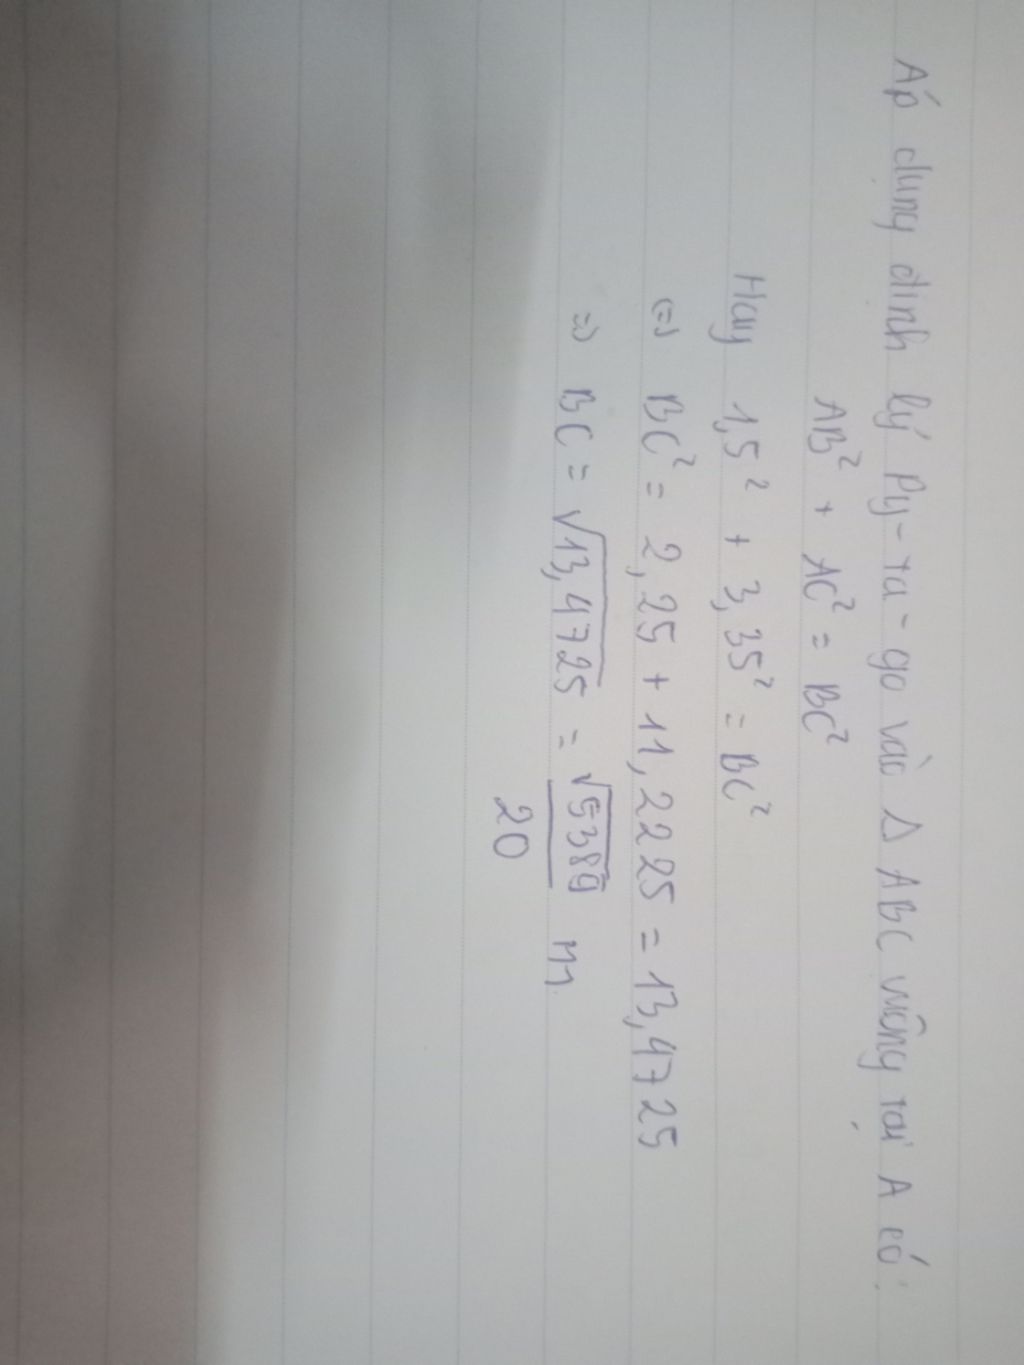 Áp dụng định lý Py-ta-go vào Δ ABC vuông tại A có:
AB² + AC² = BC²
Hay 1,5² + 3,35² = BC²
(=) BC² = 2,25 + 11,2225 = 13,4725
=) BC = √13,4725 = √5389 / 20 m.